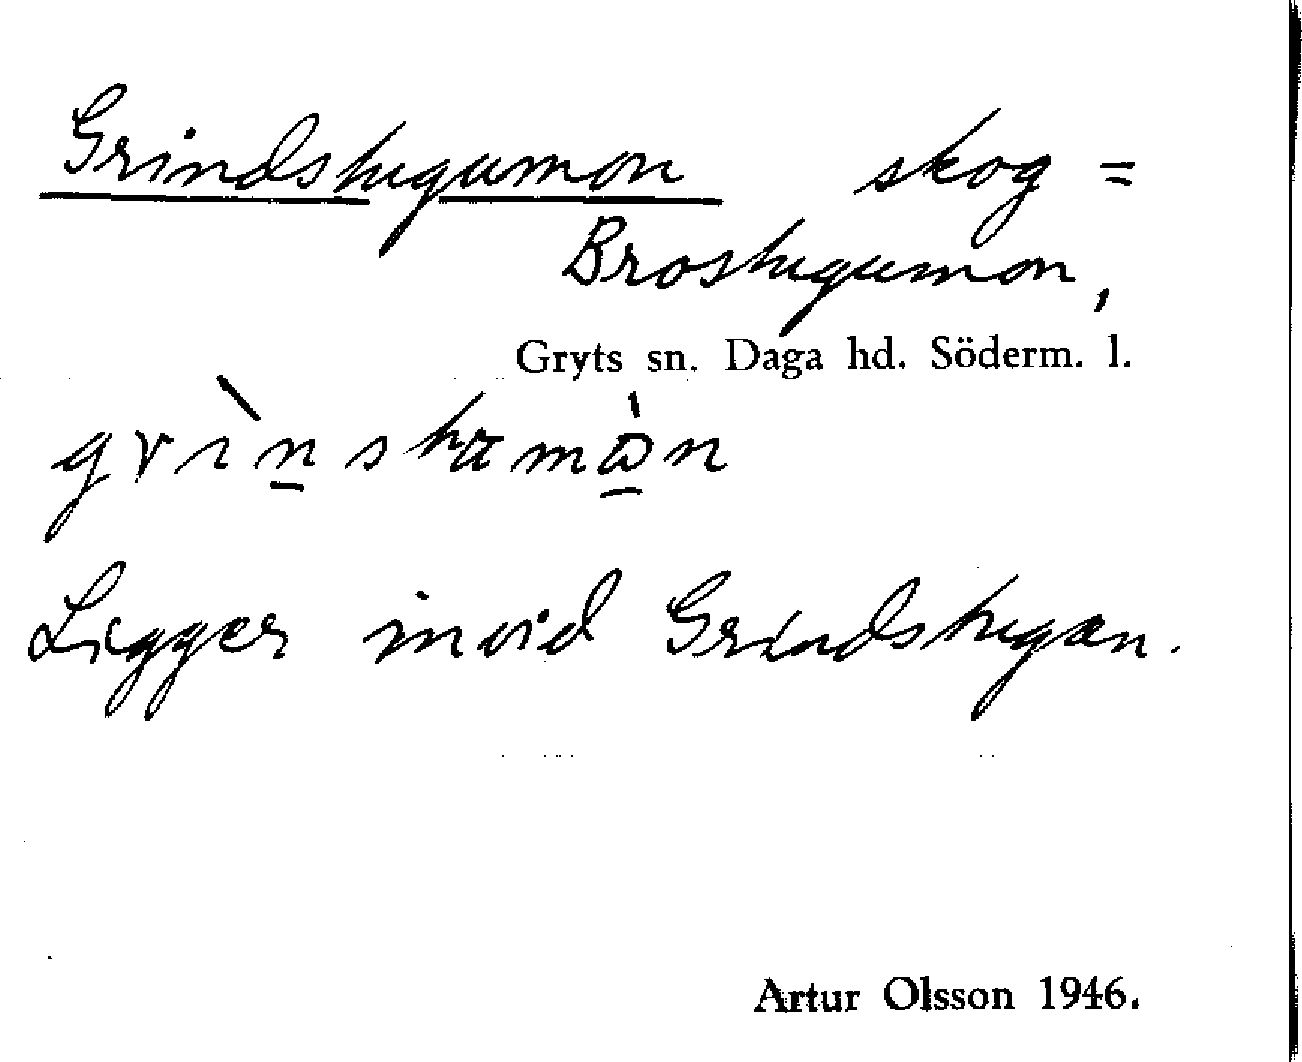 Grindstugumon skog =
Brostugumon,
Gryts sn. Daga hd. Söderm. l.
Ligger invid Grindstugan.
Artur Olsson 1946.